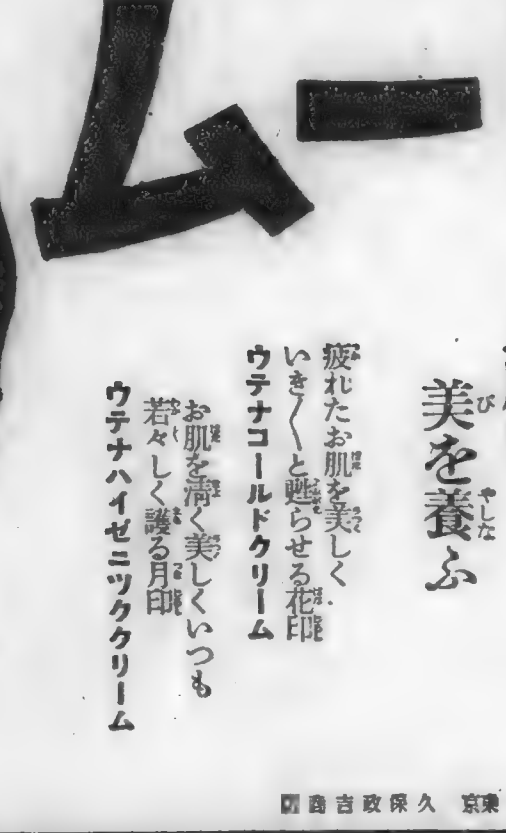 ーム
美を養ふ
疲れたお肌を美しく
いき〱と甦らせる花印
ウテナコールドクリーム
お肌を淸く美しくいつも
若々しく護る月印
ウテナハイゼニツククリーム
東京 久保政吉商